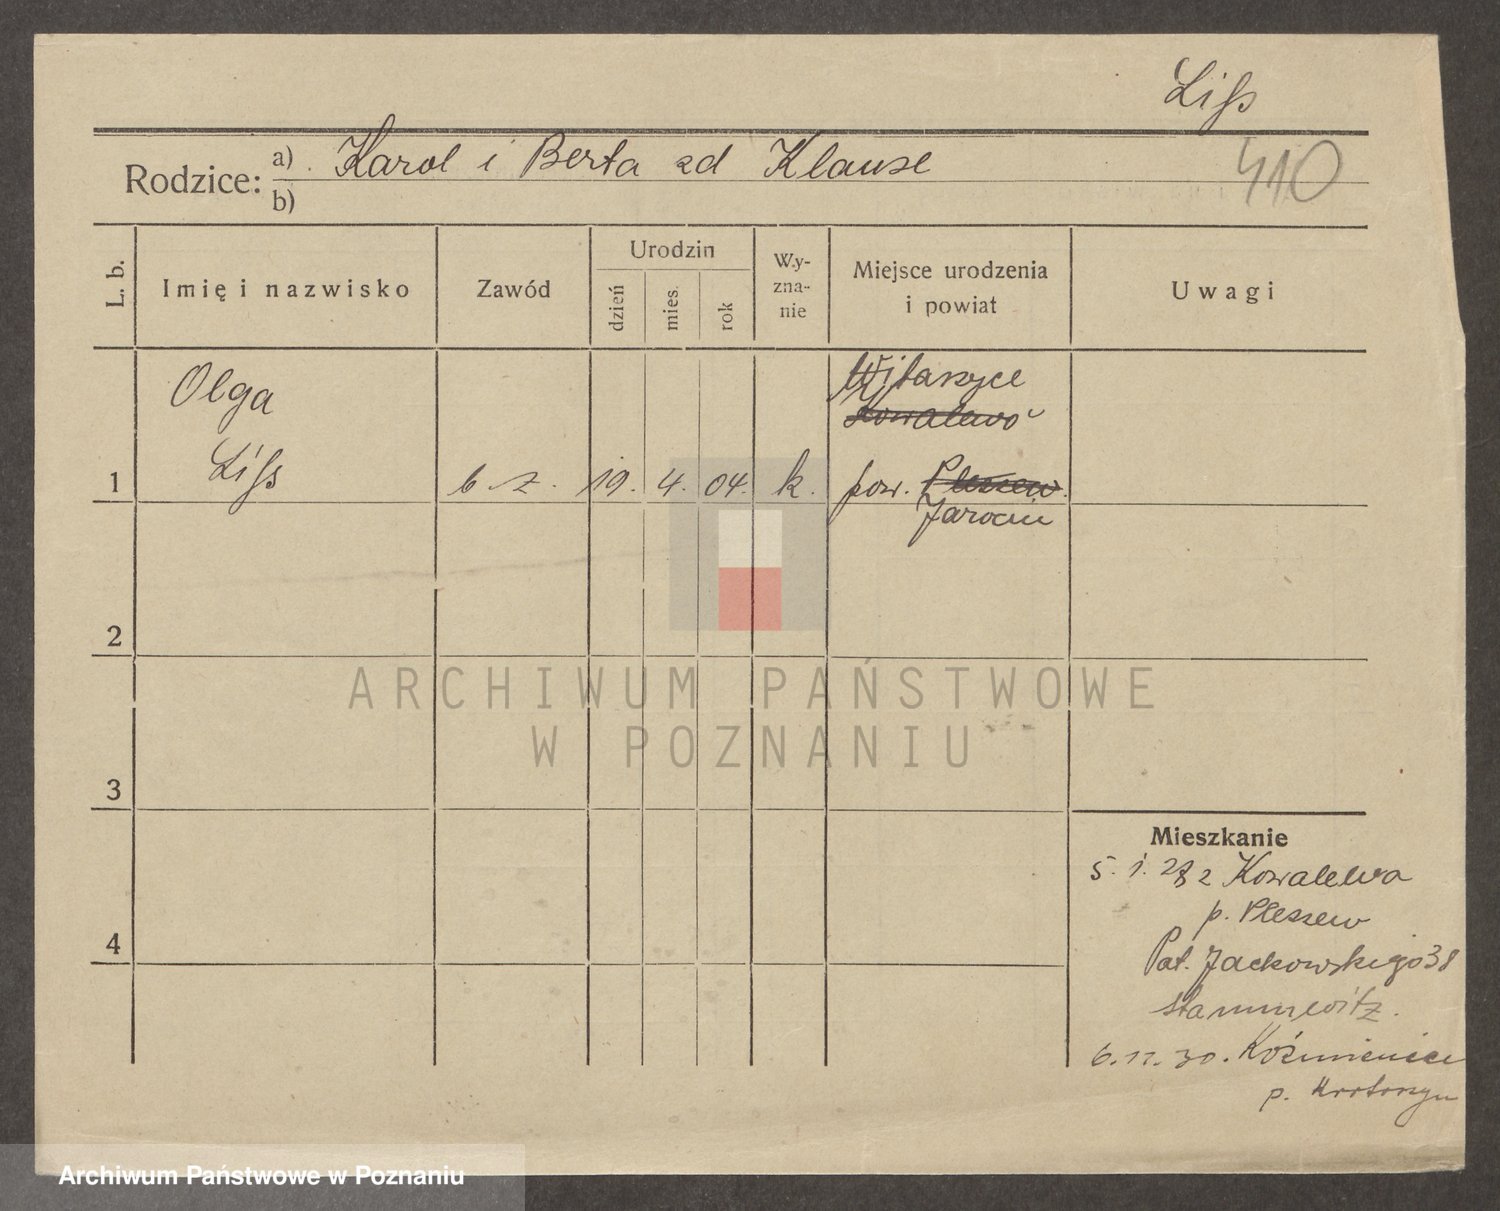 Liss
Rodzice: a) Karol i Berta zd Klause
b)
410
L. b.
Imię i nazwisko
Zawód
Urodzin
dzień
mies.
rok
Wy-
zna-
nie
Miejsce urodzenia
i powiat
Uwagi
Olga
Witaszyce
Kowalewo
Liss
1
b. z.
19.
4.
04.
k.
pow. Pleszew.
Jarocin
2
3
4
ARCHIWUM PAŃSTWOWE
W POZNANIU
Mieszkanie
5. 1. 28 z Kowalewa
p. Pleszew
Pat. Jackowskiego 38
6. 11. 30. Koźminiece
p. Krotoszyn
Archiwum Państwowe w Poznaniu